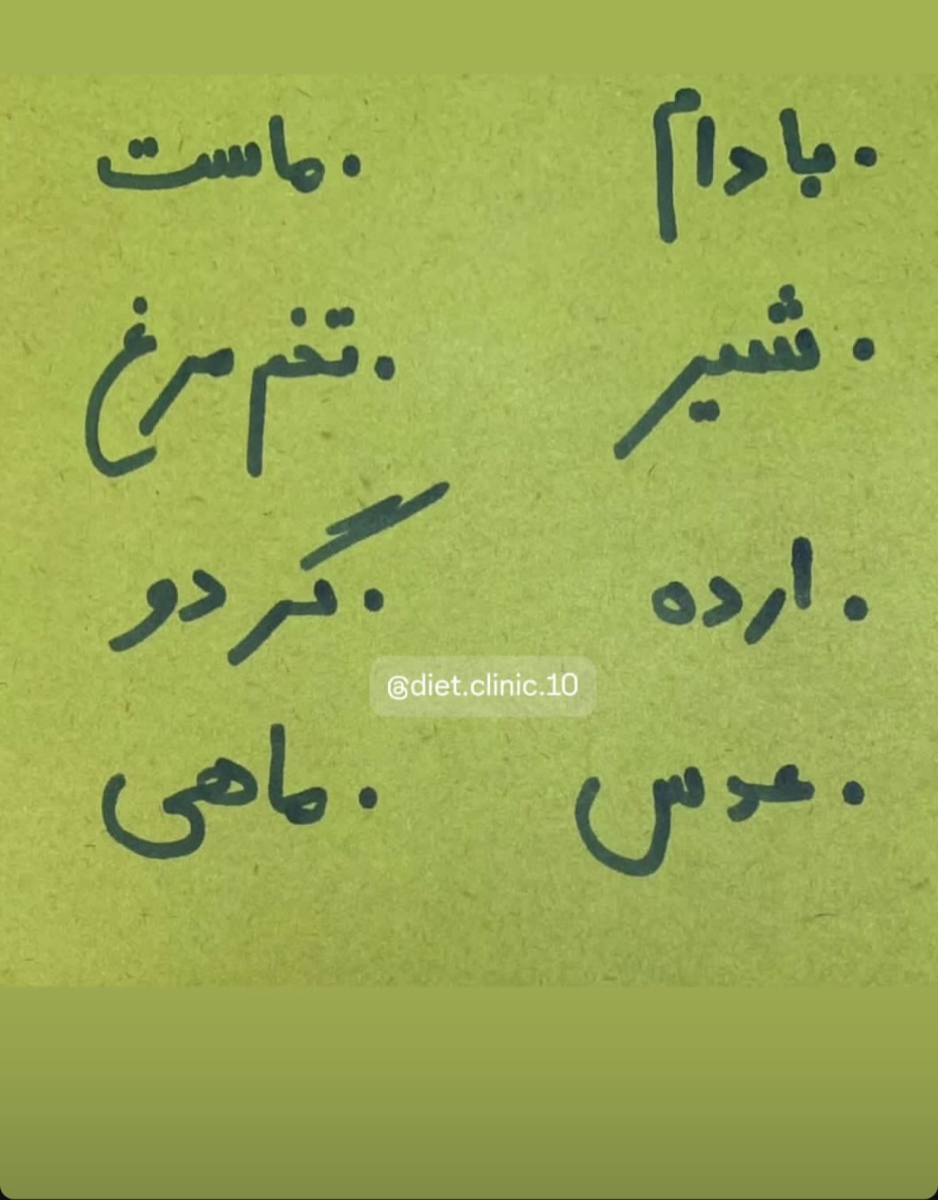 . بادام . ماست
. شیر . تخم مرغ
. ارده . گردو
@diet.clinic.10
. عدس . ماهی